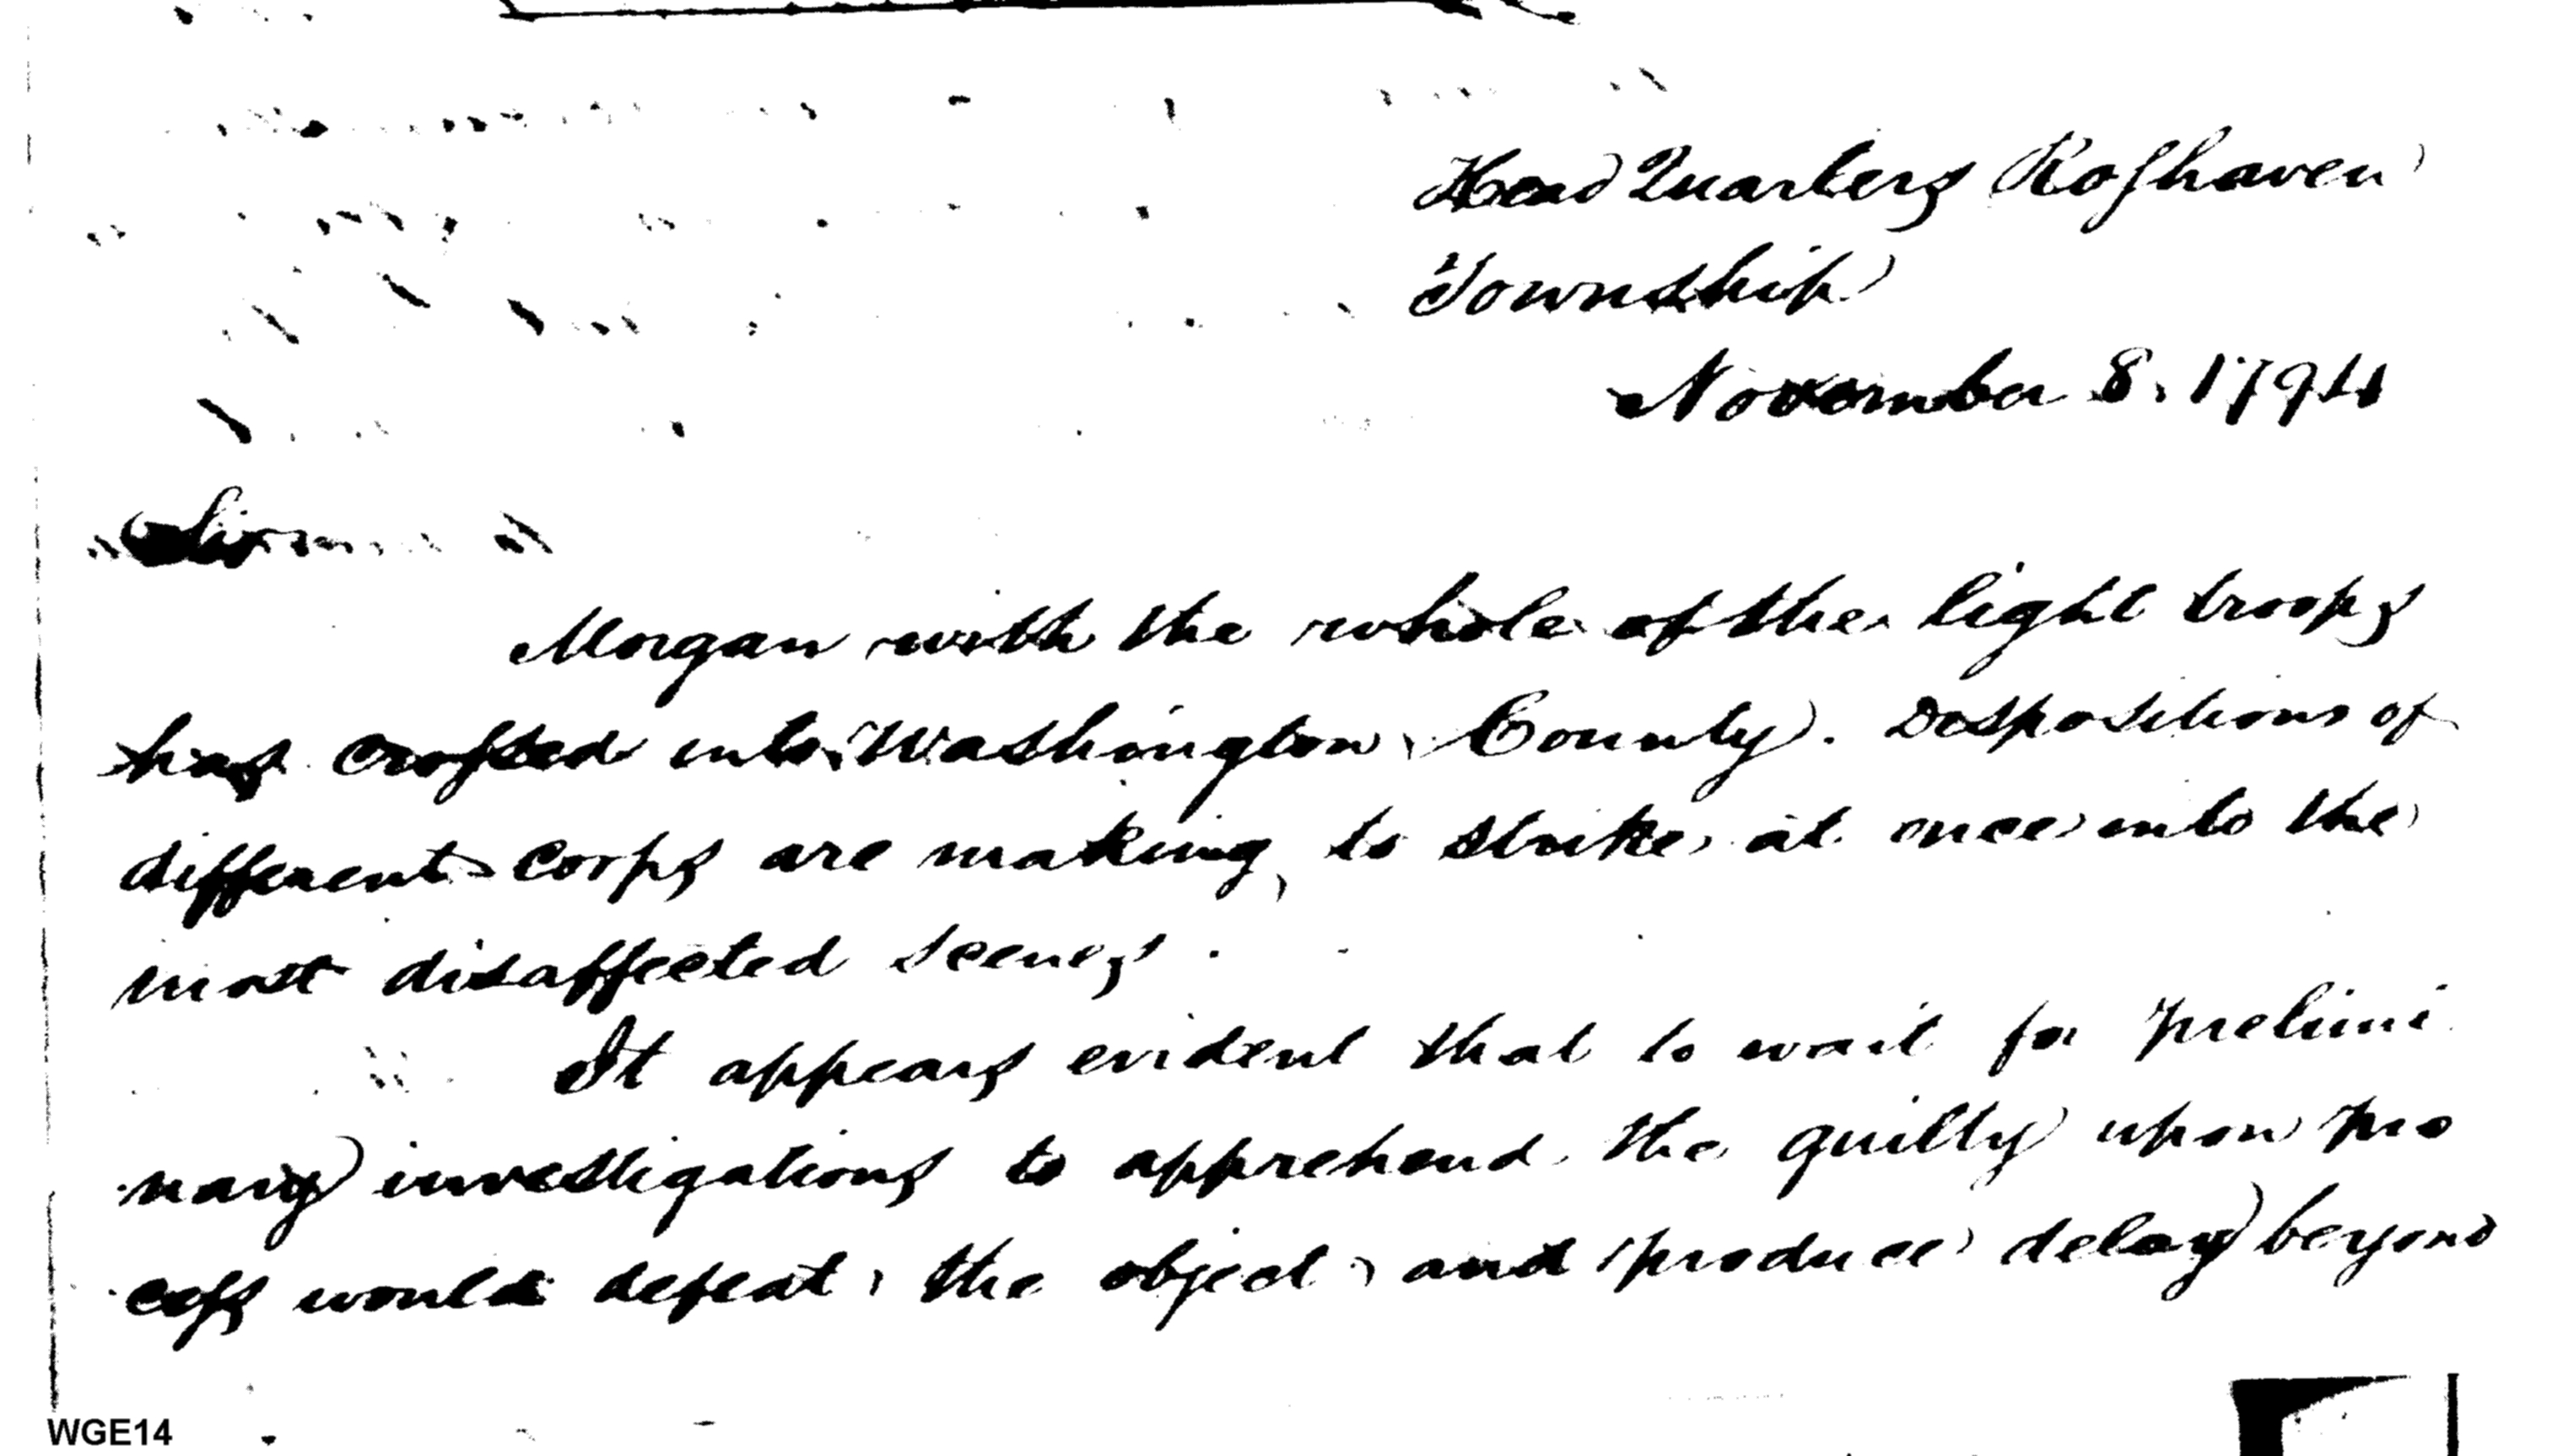 Head Quarters Rosshaven
Township
November 8. 1794
Sir
Morgan with the whole of the light troops
has crossed into Washington County. Dispositions of
different corps are making, to strike at once into the
most disaffected scenes.
It appears evident that to wait for prelimi
nary investigations to apprehend the guilty upon pro
cess would defeat the object and produce delay beyond
WGE14